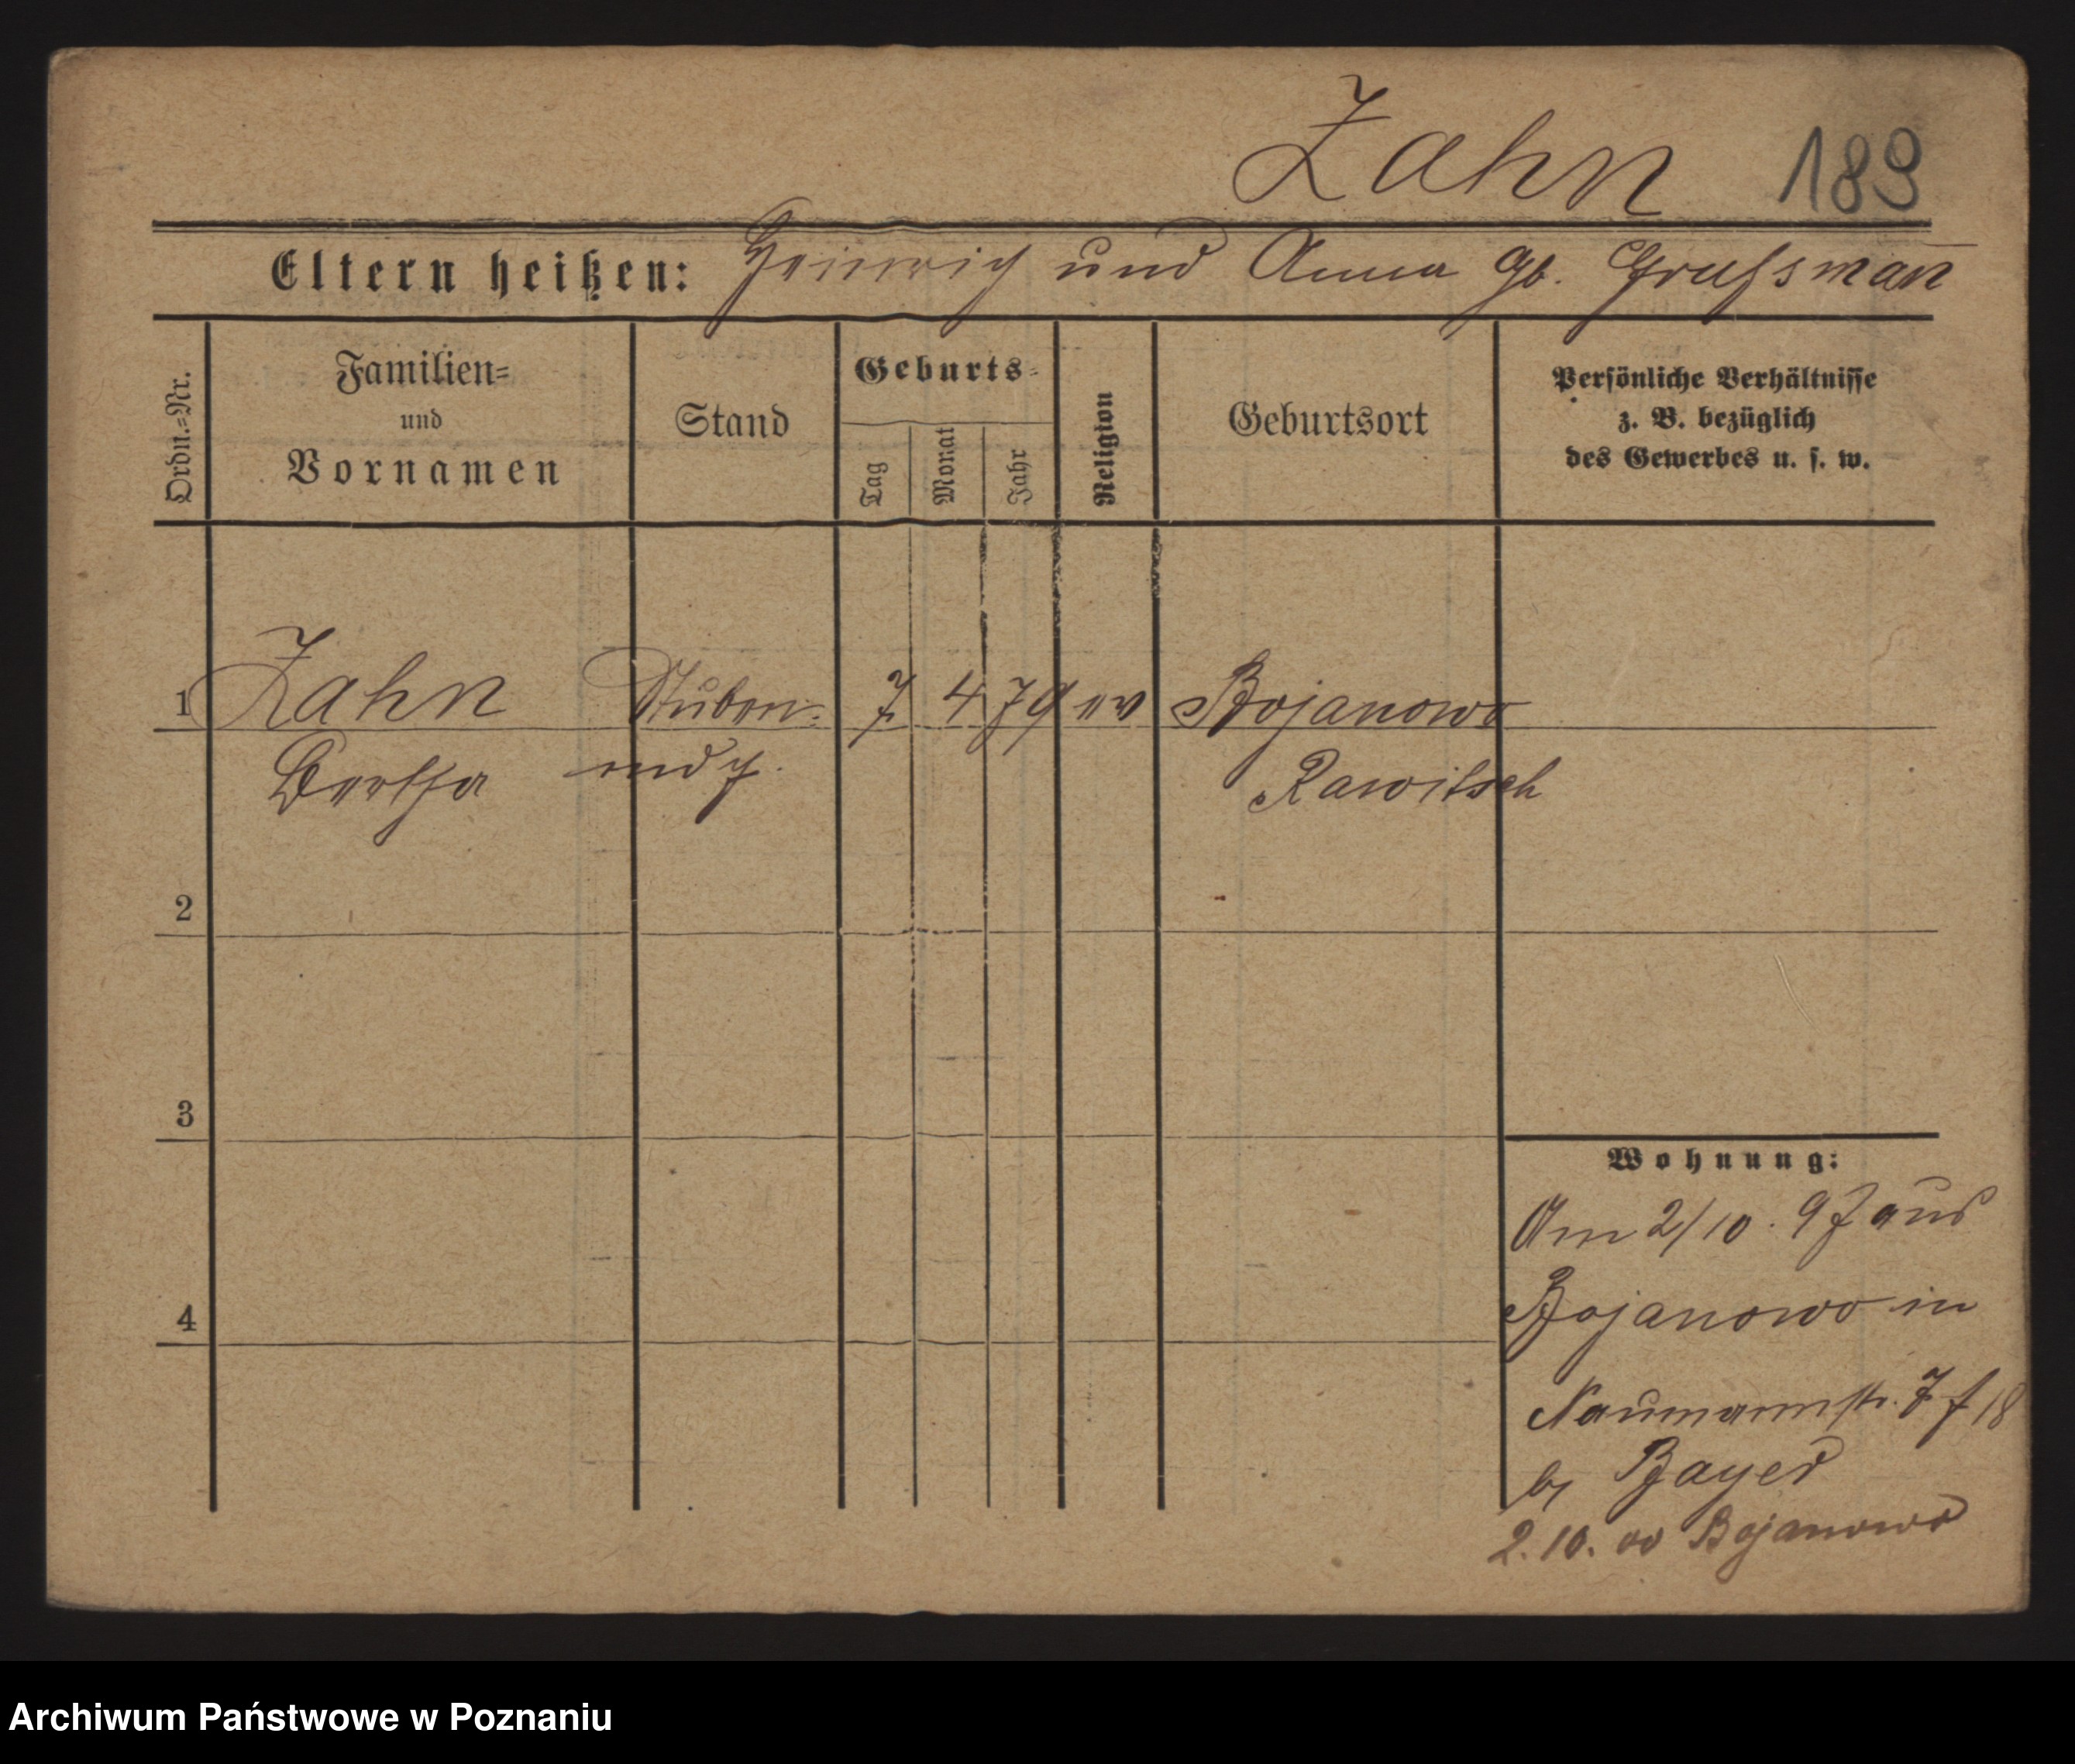 Zahn 189
Eltern heißen: Heinrich und Anna gb. Grußman̄
Ordn.=Nr.
Familien=
und
Vornamen
Stand
Geburts=
Tag
Monat
Jahr
Religion
Geburtsort
Persönliche Verhältnisse
z. B. bezüglich
des Gewerbes u. s. w.
1 Zahn Stuben- 7 4 79 ev Bojanowo
Bertha mdch. Rawitsch
2
3
4
Wohnung:
Am 2/10. 97 aus
Bojanowo in
Naumannstr. 7 f 18
b/ Bayer
2. 10. 00 Bojanowo
Archiwum Państwowe w Poznaniu